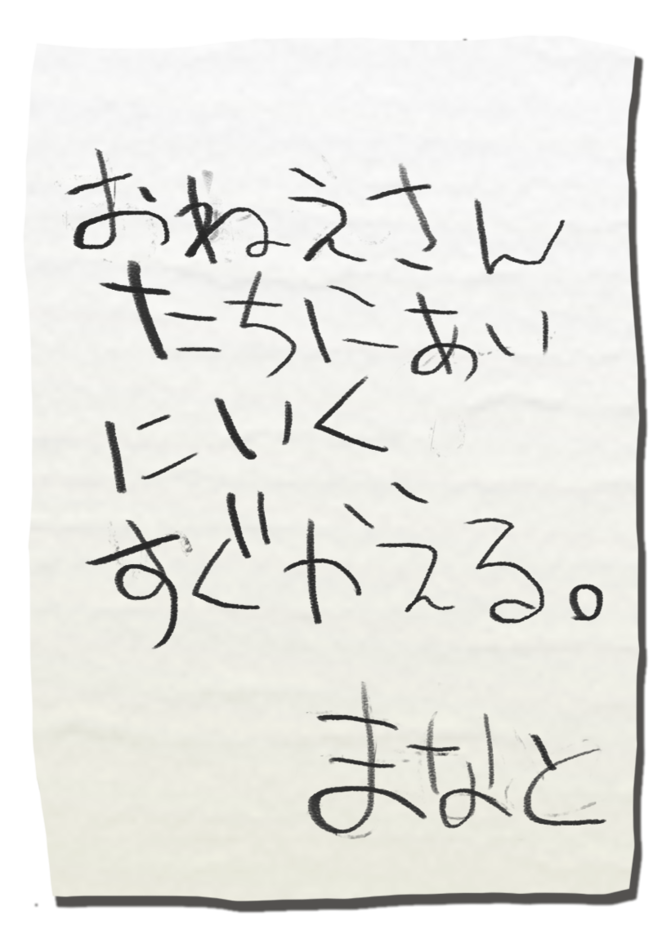 おねえさん
たちにあい
にいく
すぐかえる。
まなと